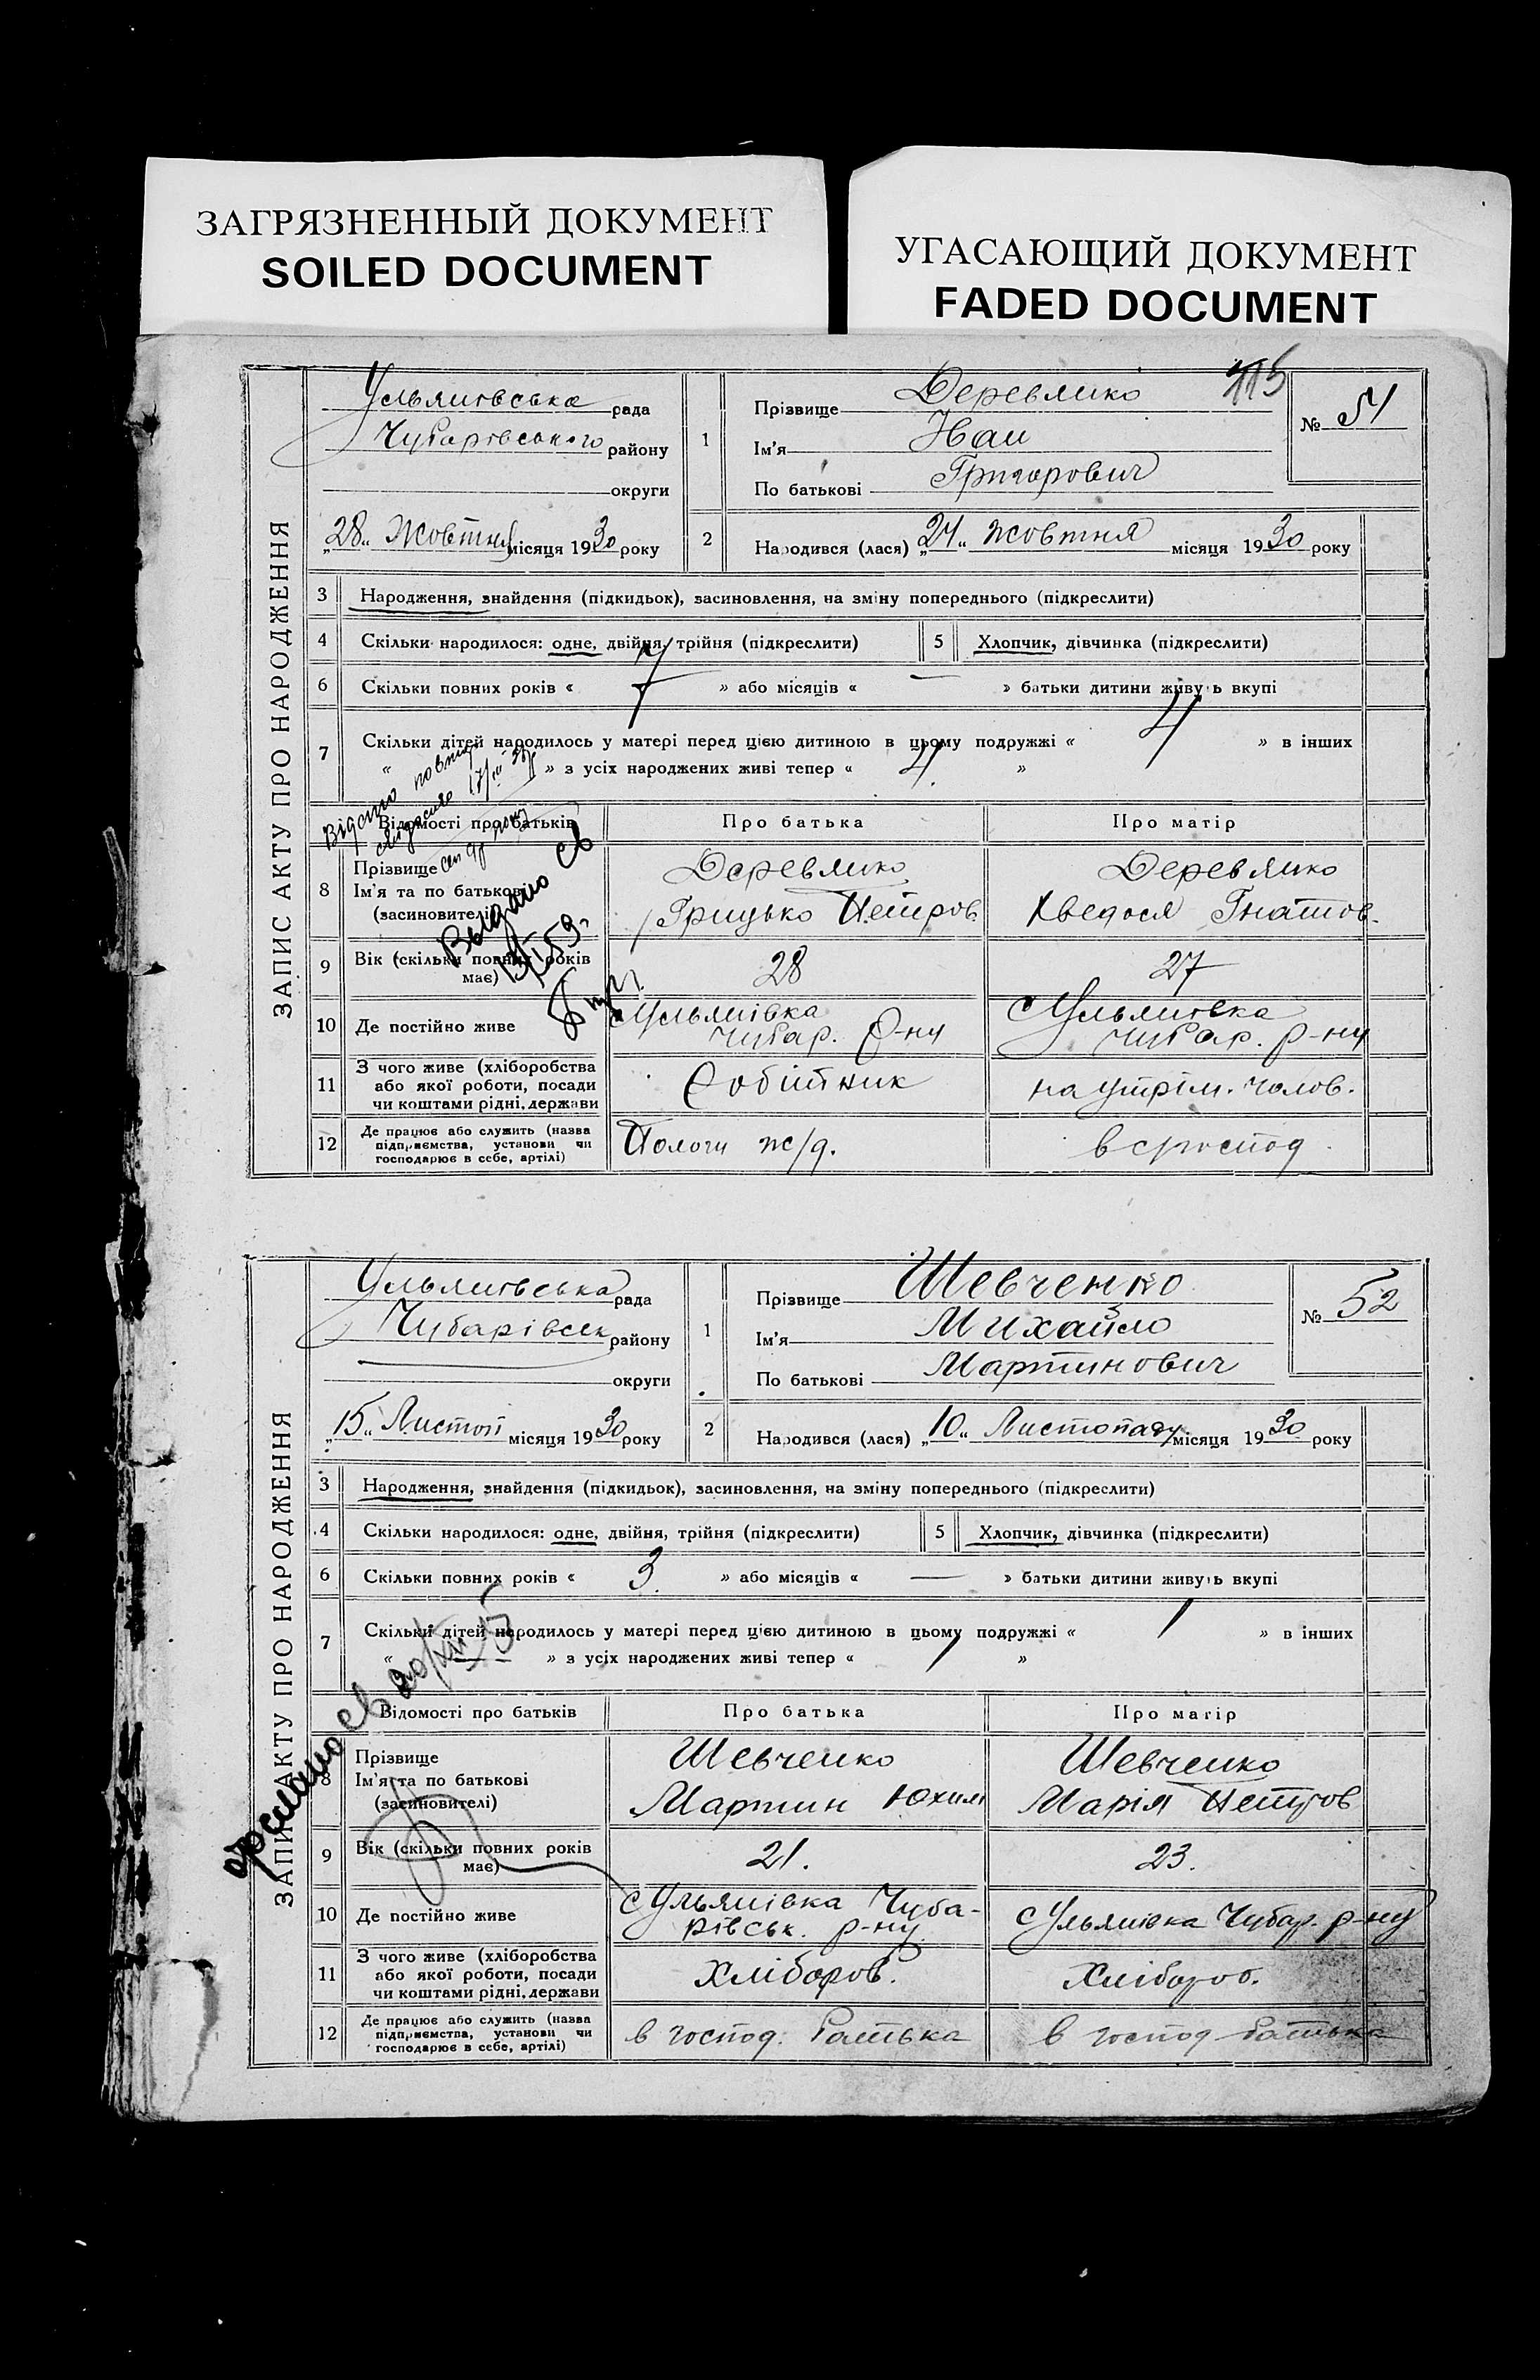 ЗАГРЯЗНЕННЫЙ ДОКУМЕНТ
SOILED DOCUMENT
УГАСАЮЩИЙ ДОКУМЕНТ
FADED DOCUMENT
ЗАПИС АКТУ ПРО НАРОДЖЕННЯ
Ульянівська рада
Чубарівського району
округи
„28“ Жовтня місяця 1930 року
1
Прізвище Деревянко
Ім'я Іван
По батькові Григорович
№ 51
2
Народився (лася) „24“ жовтня місяця 1930 року
3 Народження, знайдення (підкидьок), засиновлення, на зміну попереднього (підкреслити)
4 Скільки народилося: одне, двійня, трійня (підкреслити) 5 Хлопчик, дівчинка (підкреслити)
6 Скільки повних років « 7 » або місяців « — » батьки дитини живуть вкупі
7 Скільки дітей народилось у матері перед цією дитиною в цьому подружжі « 4 » в інших
« » з усіх народжених живі тепер « 4. »
Відомості про батьків Про батька Про матір
Выдано св
8 Прізвище
Ім'я та по батькові
(засиновителі)
Деревянко
Грицько Петров
Деревянко
Хведося Гнатов.
9 Вік (скільки повних років
має)
28
27
10 Де постійно живе
с Ульянівка
Чубар. р-ну
с Ульянівка
Чубар. р-ну
11 З чого живе (хліборобства
або якої роботи, посади
чи коштами рідні, держави
Робітник
на утрім. чолов.
12 Де працює або служить (назва
підприємства, установи чи
господарює в себе, артілі)
Пологи ж/д.
ЗАПИС АКТУ ПРО НАРОДЖЕННЯ
Ульянівська рада
Чубарівськ району
округи
„15“ Листоп місяця 1930 року
1
Прізвище Шевченко
Ім'я Михайло
По батькові Мартинович
№ 52
2
Народився (лася) „10“ Листопаду місяця 1930 року
3 Народження, знайдення (підкидьок), засиновлення, на зміну попереднього (підкреслити)
4 Скільки народилося: одне, двійня, трійня (підкреслити) 5 Хлопчик, дівчинка (підкреслити)
6 Скільки повних років « 3. » або місяців « — » батьки дитини живуть вкупі
7 Скільки дітей народилось у матері перед цією дитиною в цьому подружжі « 1 » в інших
« » з усіх народжених живі тепер « 1 »
Відомості про батьків Про батька Про матір
8 Прізвище
Ім'я та по батькові
(засиновителі)
Шевченко
Мартин Юхим
Шевченко
Марія Петров
9 Вік (скільки повних років
має)
21.
23.
10 Де постійно живе
с Ульянівка Чуба-
рівськ. р-ну
с Ульянівка Чубар. р-ну
11 З чого живе (хліборобства
або якої роботи, посади
чи коштами рідні, держави
Хлібороб.
Хлібороб.
12 Де працює або служить (назва
підприємства, установи чи
господарює в себе, артілі)
в господ. батька
в господ батька